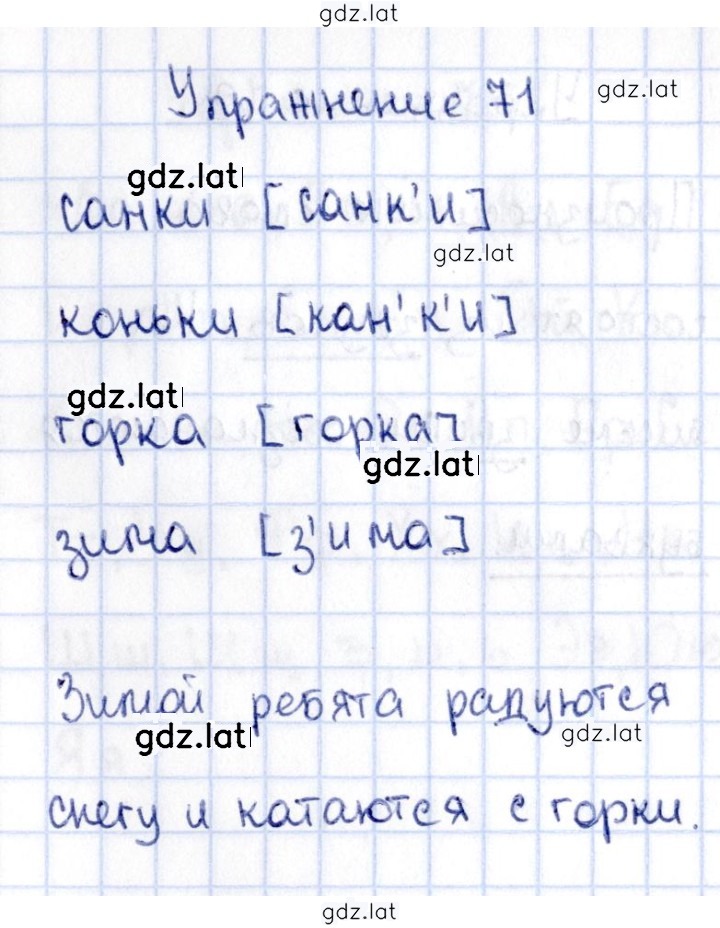 gdz.lat
Упражнение 71
gdz.lat
gdz.lat
санки [санк'и]
gdz.lat
коньки [кан'к'и]
gdz.lat
горка [горка]
gdz.lat
зима [з'има]
Зимой ребята радуются
gdz.lat
gdz.lat
снегу и катаются с горки.
gdz.lat